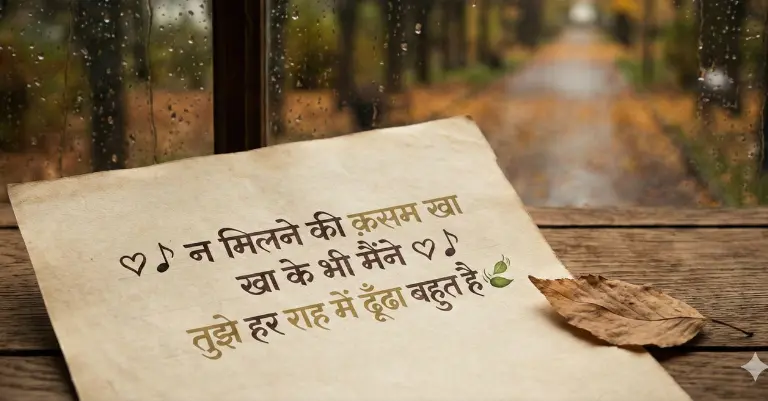 ♡♪ न मिलने की क़सम खा
खा के भी मैंने ♡♪
तुझे हर राह में ढूँढा बहुत है